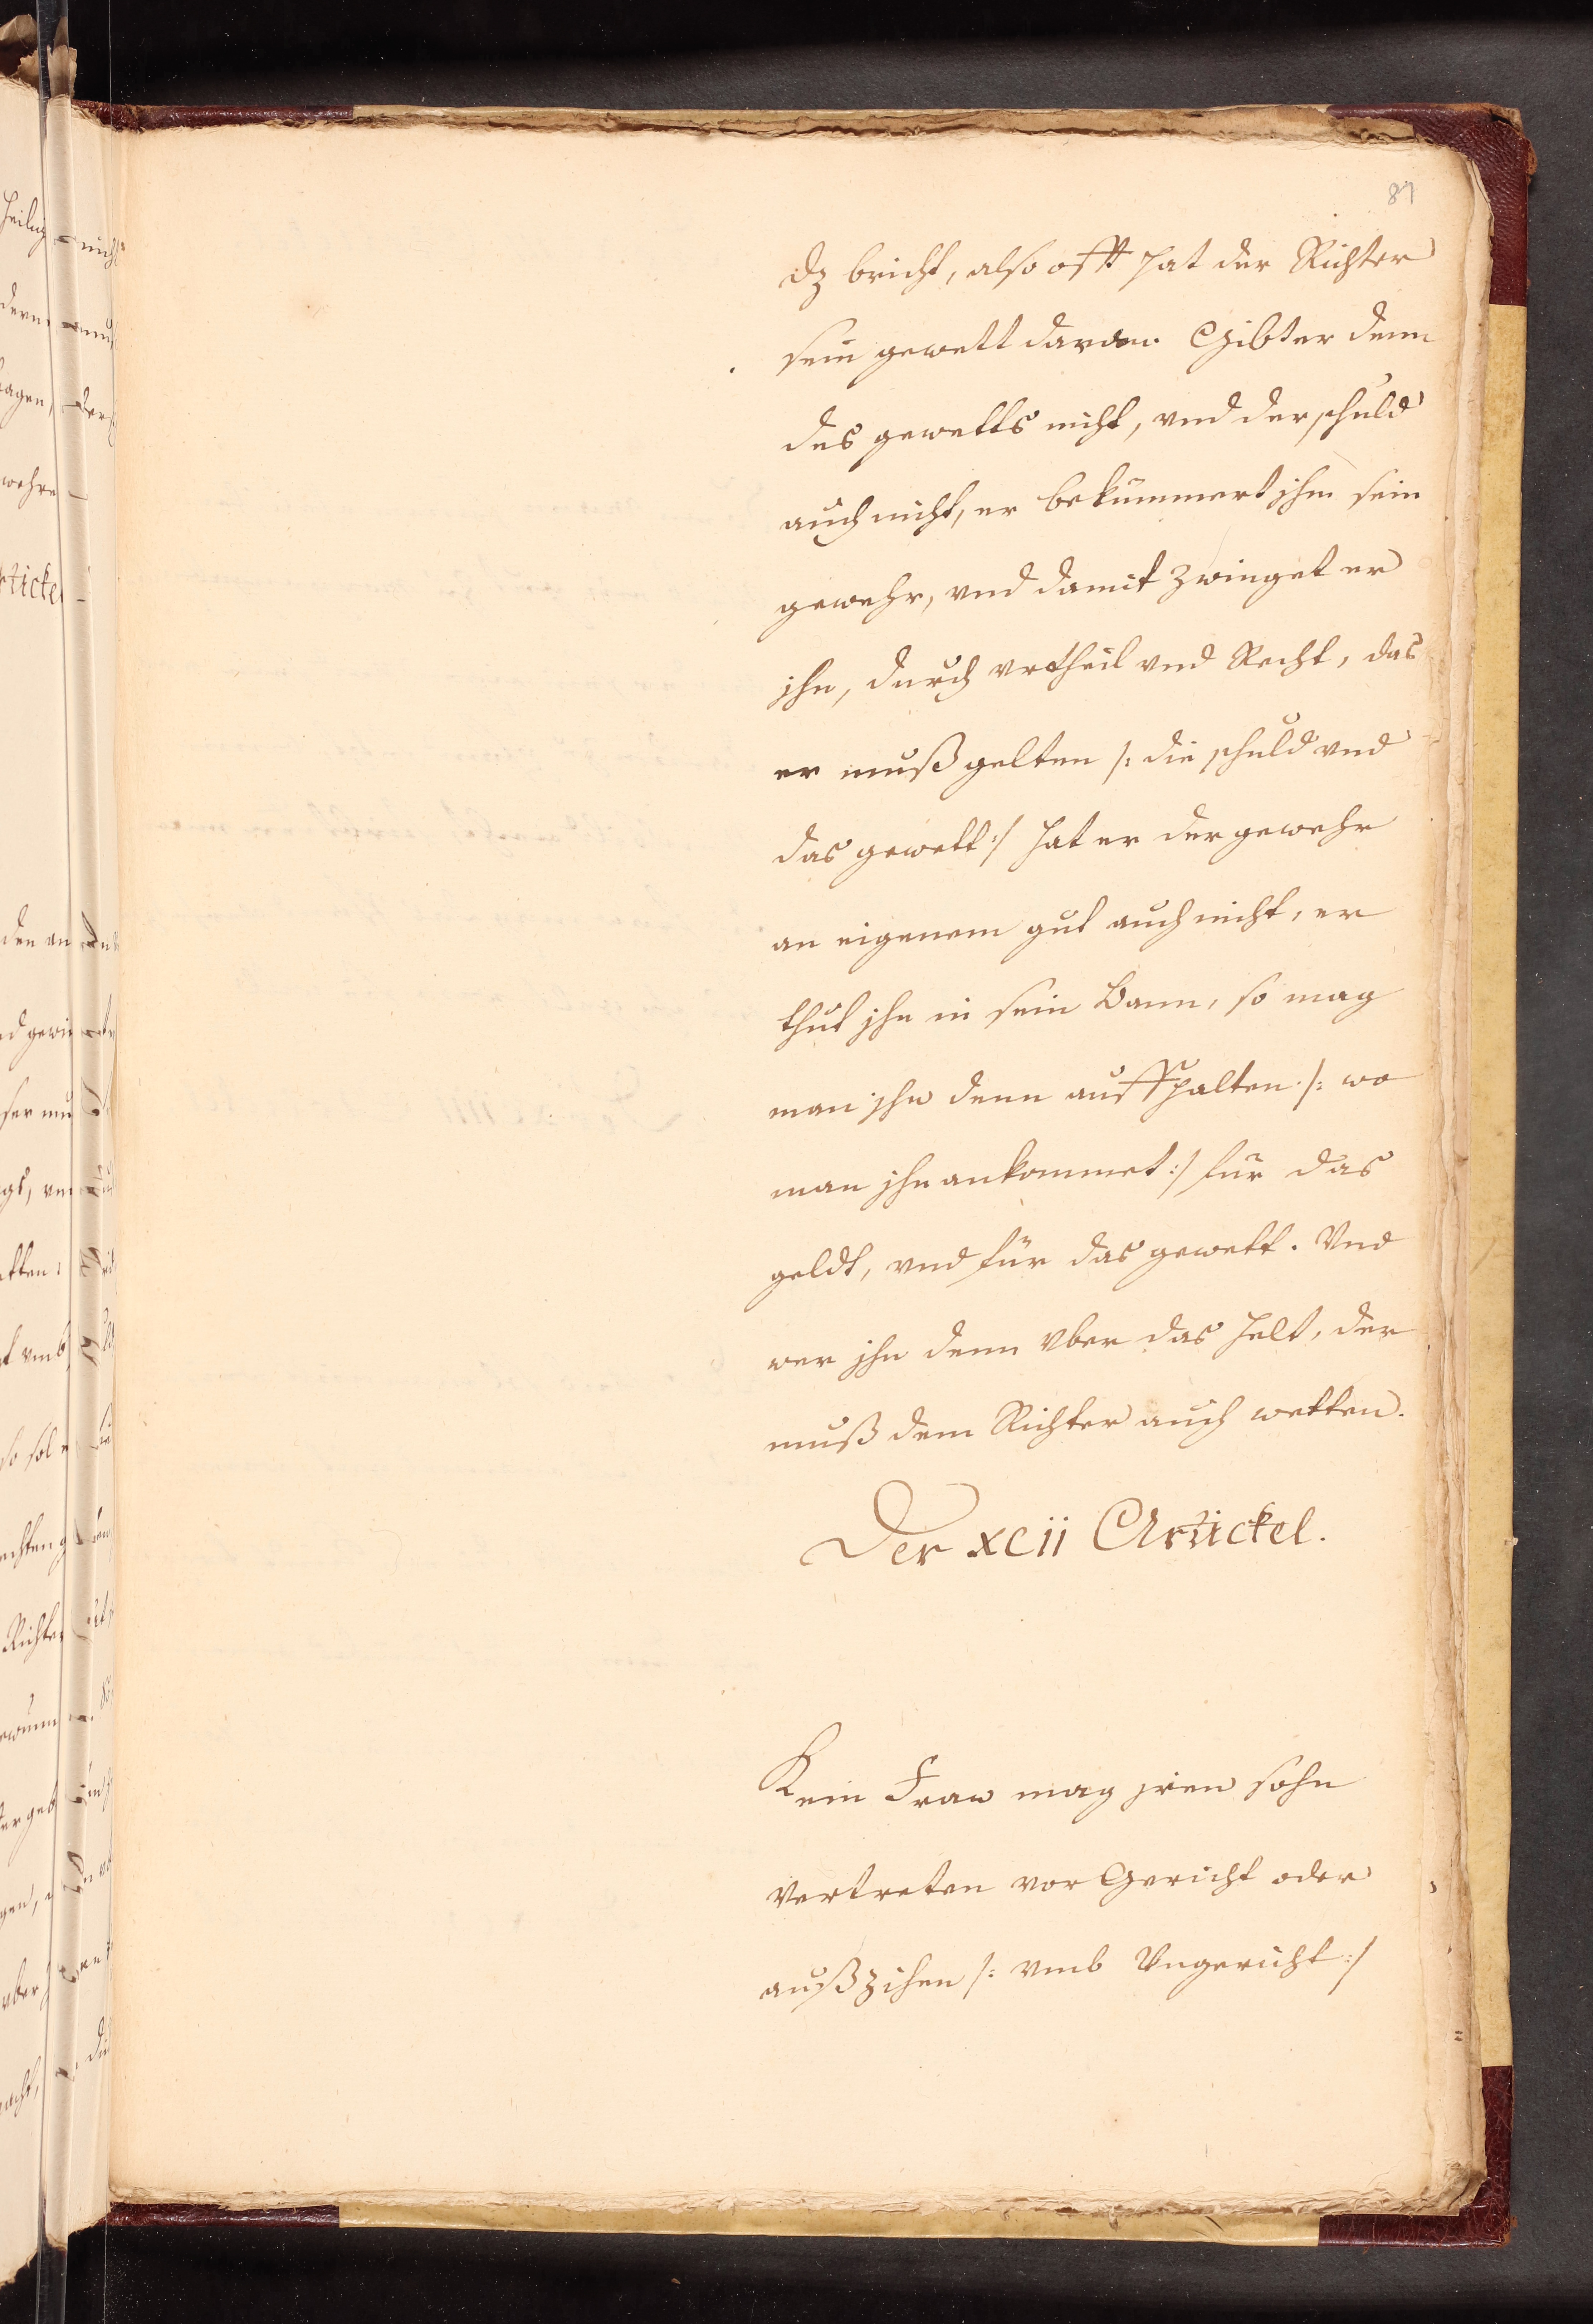 87
dz bricht, also offt hat der Richter
sein gewett daran. Gibt er denn
des gewetts nicht, vnd der schuld
auch nicht, er bekümmert jhm sein
gewehr, vnd damit zwinget er
jhn, durch vrtheil vnd Recht, das
er muß gelten /: die schuld vnd
das gewett :/ hat er der gewehr
an eigenem gut auch nicht, er
thut jhn in sein Bann, so mag
man jhn denn auffhalten /: wo
man jhn ankommet :/ für das
geldt, vnd für das gewett. Vnd
wer jhn denn vber das helt, der
muß dem Richter auch wetten.
Der xcii Artickel.
Kein Fraw mag jren sohn
vertreten vor Gericht oder
außzihen /: vmb Vngericht :/